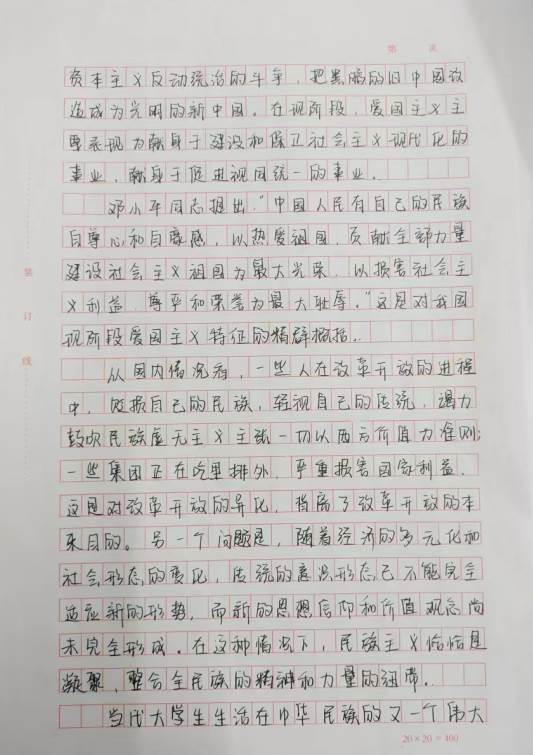 第 页
资本主义反动统治的斗争，把黑暗的旧中国改
造成为光明的新中国。在现阶段，爱国主义主
要表现为献身于建设和保卫社会主义现代化的
事业，献身于促进祖国统一的事业。
邓小平同志提出，“中国人民有自己的民族
自尊心和自豪感，以热爱祖国，贡献全部力量
建设社会主义祖国为最大光荣，以损害社会主
义利益、尊严和荣誉为最大耻辱。”这是对我国
现阶段爱国主义特征的精辟概括。
从国内情况看，一些人在改革开放的进程
中，贬损自己的民族，轻视自己的传统，竭力
鼓吹民族虚无主义主张一切以西方价值为准则；
一些集团正在吃里排外，严重损害国家利益。
这是对改革开放的异化，背离了改革开放的本
来目的。另一个问题是，随着经济的多元化和
社会形态的变化，传统的意识形态已不能完全
适应新的形势，而新的思想信仰和价值观念尚
未完全形成。在这种情况下，民族主义恰恰是
凝聚、整合全民族的精神和力量的纽带。
当代大学生生活在中华民族的又一个伟大
装
订
线
20×20=400